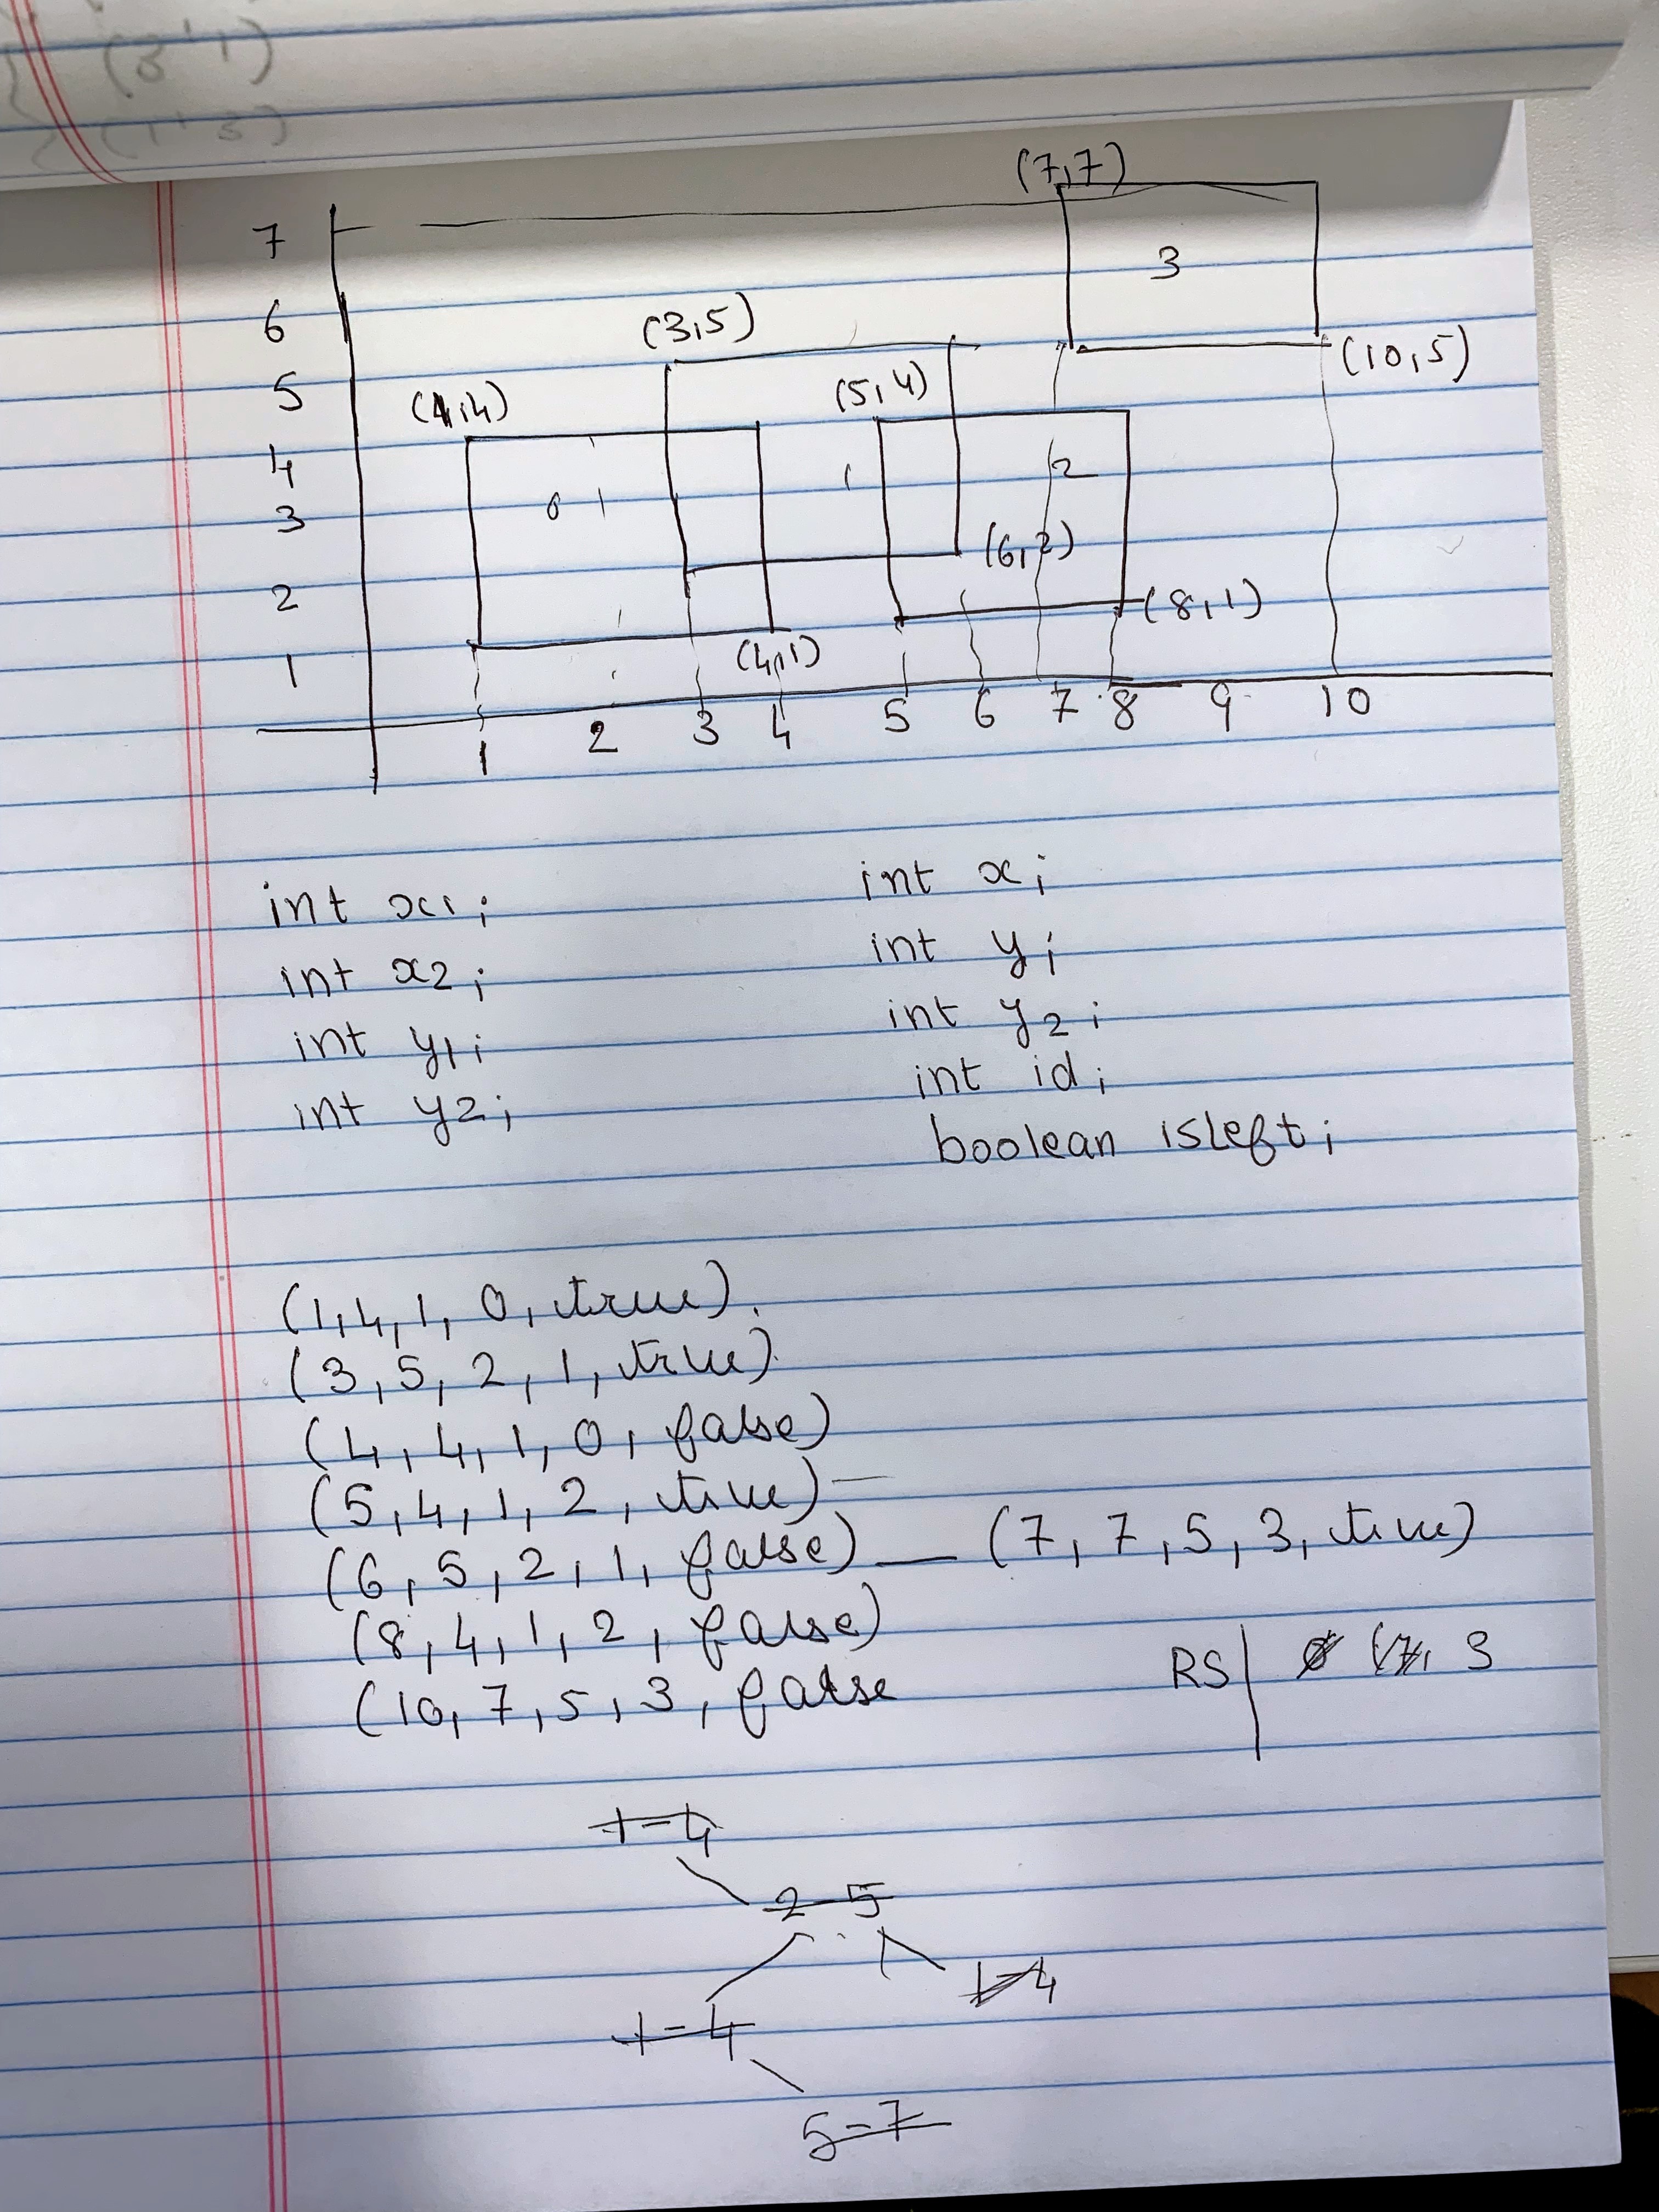 (7,7)
7
3
6
(3,5)
(10,5)
5
(5,4)
(1,4)
4
1
2
0
3
(6,2)
2
(8,1)
(4,1)
1
1 2 3 4 5 6 7 8 9 10
int x1; int x;
int x2; int y;
int y1; int y2;
int y2; int id;
boolean isLeft;
(1,4,1,0,true)
(3,5,2,1,true)
(4,4,1,0,false)
(5,4,1,2,true)
(6,5,2,1,false) — (7,7,5,3,true)
(8,4,1,2,false)
(10,7,5,3,false
RS 3
1-4
2-5
1-4
1-4
5-7